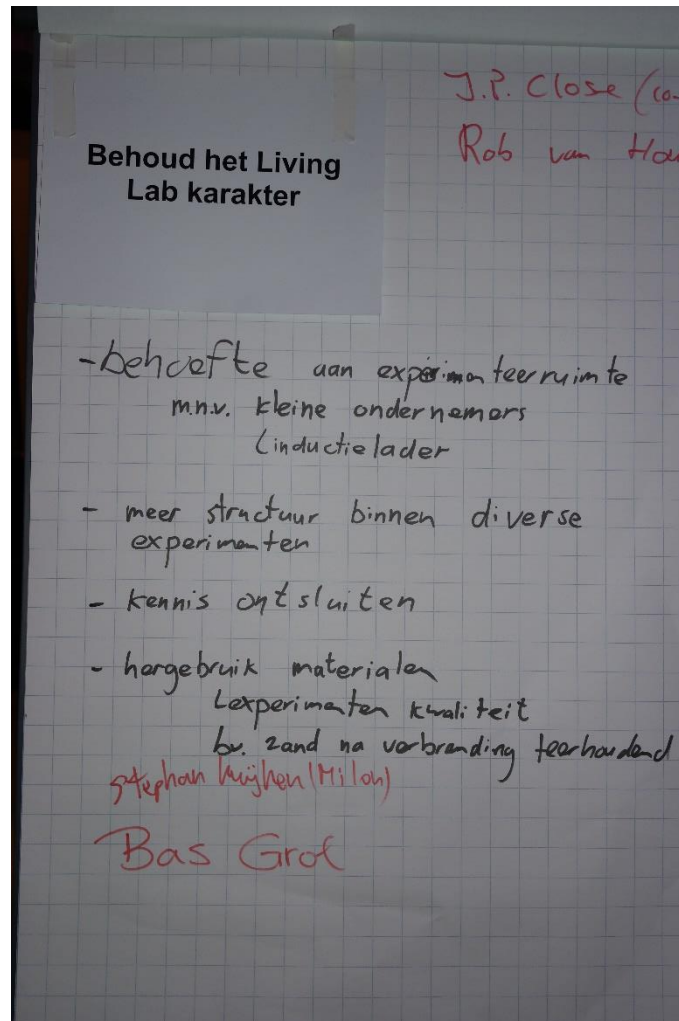 J.P. Close (co-
Rob van Hou
Behoud het Living
Lab karakter
- behoefte aan experimenteerruimte
m.n.v. kleine ondernemers
(inductielader
- meer structuur binnen diverse
experimenten
- kennis ontsluiten
- hergebruik materialen
experimenten kwaliteit
bv. zand na verbranding teerhoudend
Stephan (Milon)
Bas Grol